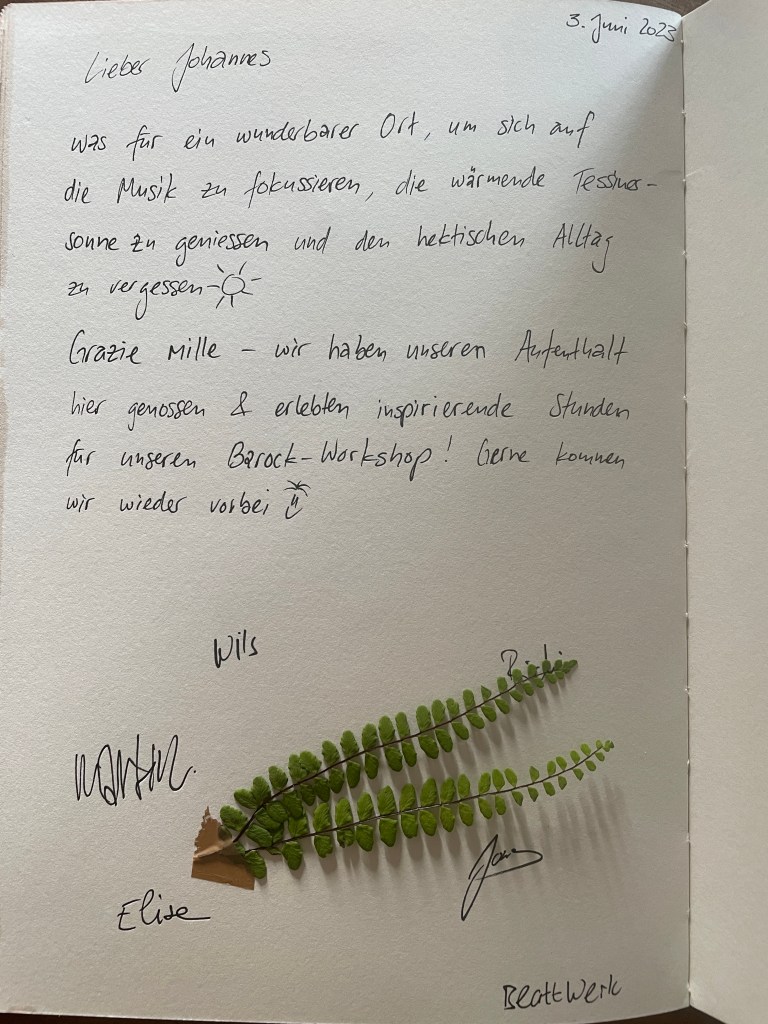 3. Juni 2023
Lieber Johannes
was für ein wunderbarer Ort, um sich auf
die Musik zu fokussieren, die wärmende Tessiner-
sonne zu geniessen und den hektischen Alltag
zu vergessen
Grazie Mille – wir haben unseren Aufenthalt
hier genossen & erlebten inspirierende Stunden
für unseren Barock-Workshop! Gerne kommen
wir wieder vorbei
Wils
Martin
Elise
BlattWerk